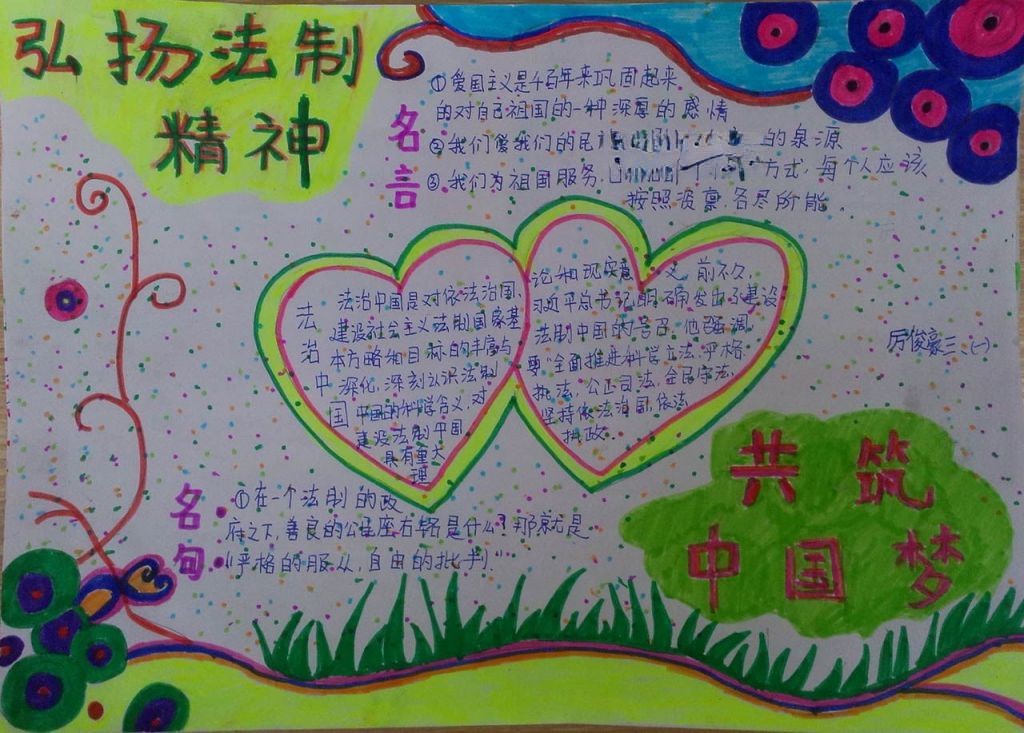 弘扬法制
精神
名言
①爱国主义是千百年来巩固起来
的对自己祖国的一种深厚的感情
②我们爱我们的民 的泉源
③我们为祖国服务. 方式,每个人应该
按照 各尽所能.
法治中国
法治中国是对依法治国,
建设社会主义法制国家基
本方略和目标的丰富与
深化,深刻认识法制
中国的科学含义,对
建设法制中国
具有重大
理
论和现实意 义,前不久,
习近平总书记明确发出了建设
法制中国的号召,他强调
要"全面推进科学立法,严格
执法,公正司法,全民守法,
坚持依法治国,依法
执政.
厉俊豪三、(一)
名句:
①在一个法制的政
府之下,善良的公民座右铭是什么?那就是
"严格的服从,自由的批判".
共筑
中国梦